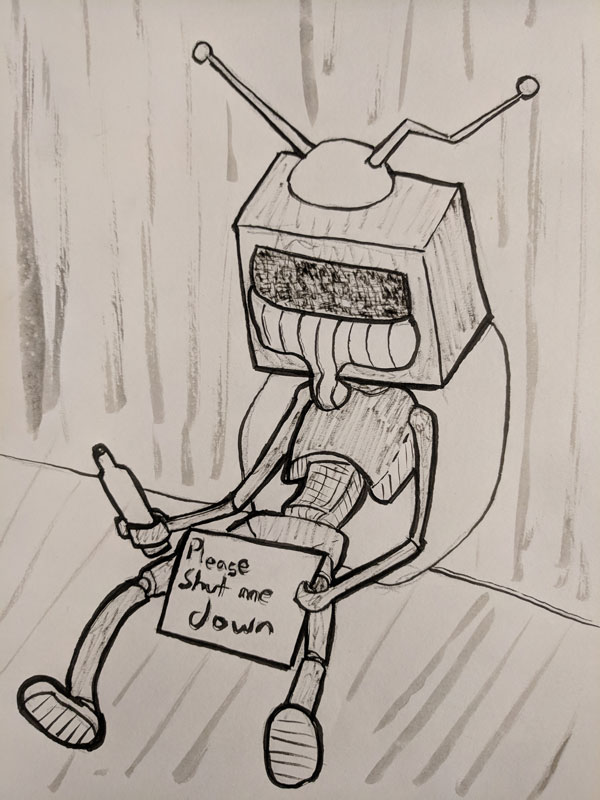 Please
Shut me
down